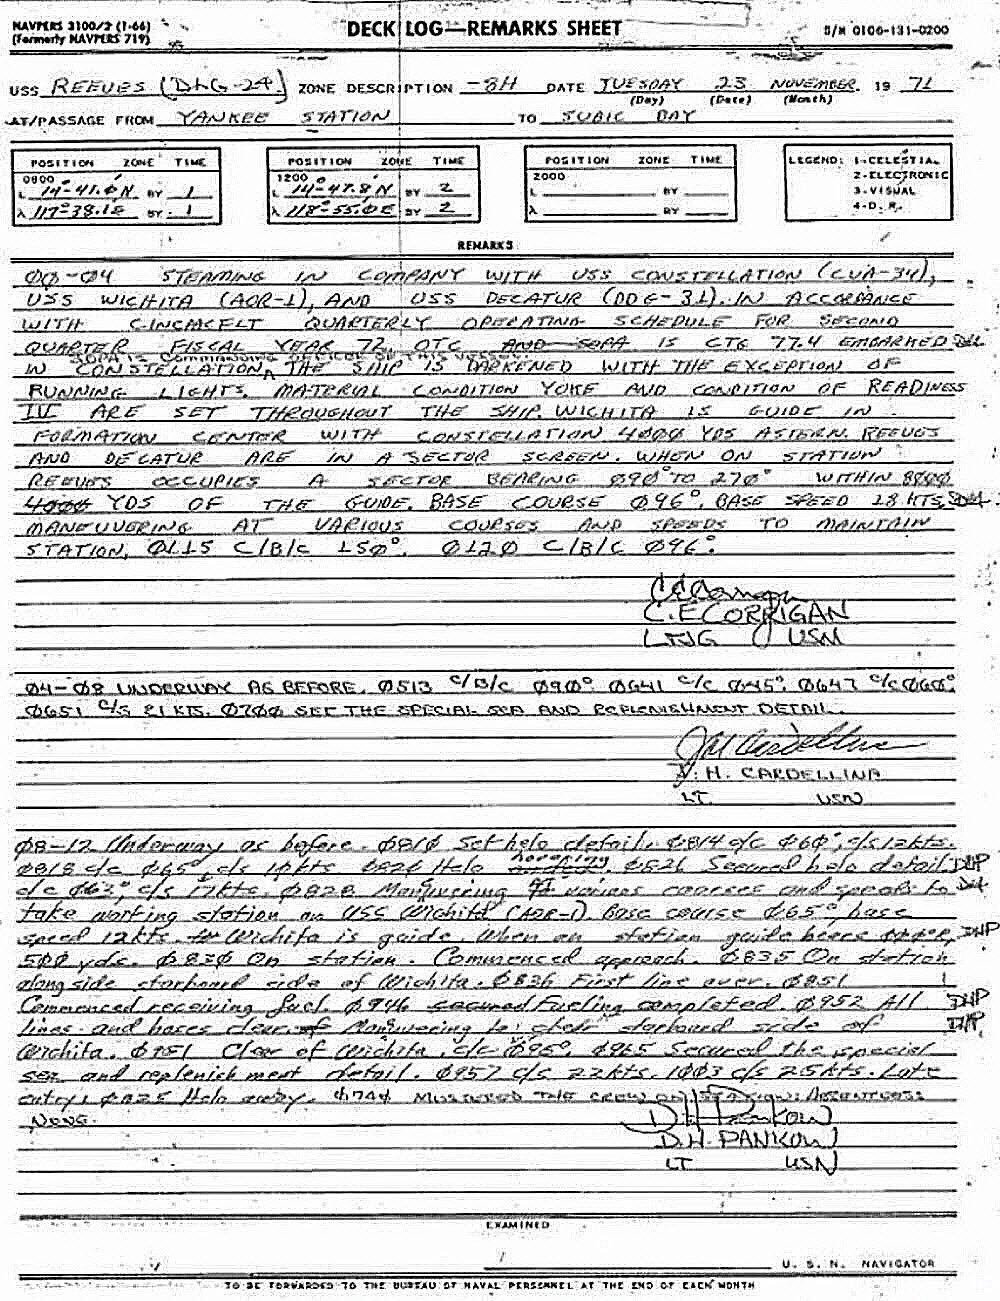 NAVPERS 3100/2 (1-66)
(Formerly NAVPERS 719)
DECK LOG—REMARKS SHEET
S/N 0106-131-0200
USS REEVES (DLG-24) ZONE DESCRIPTION -8H DATE TUESDAY 23 NOVEMBER 19 71
(Day) (Date) (Month)
AT/PASSAGE FROM YANKEE STATION TO SUBIC BAY
POSITION ZONE TIME
0800
L 14-41.0N BY 1
λ 117°-38.1E BY 1
POSITION ZONE TIME
1200
L 14-47.8N BY 2
λ 118°-55.0E BY 2
POSITION ZONE TIME
2000
L BY
λ BY
LEGEND: 1-CELESTIAL
2-ELECTRONIC
3-VISUAL
4-D.R.
REMARKS
ØØ-Ø4 STEAMING IN COMPANY WITH USS CONSTELLATION (CVA-34),
USS WICHITA (AOR-1), AND USS DECATUR (DDG-31). IN ACCORDANCE
WITH CINCPACFLT QUARTERLY OPERATING SCHEDULE FOR SECOND
QUARTER FISCAL YEAR 72. OTC AND SOPA IS CTG 77.4 EMBARKED
SOPA IS COMMANDING OFFICER OF THIS VESSEL.
IN CONSTELLATION, THE SHIP IS DARKENED WITH THE EXCEPTION OF
RUNNING LIGHTS. MATERIAL CONDITION YOKE AND CONDITION OF READINESS
IV ARE SET THROUGHOUT THE SHIP. WICHITA IS GUIDE IN
FORMATION CENTER WITH CONSTELLATION 4ØØØ YDS ASTERN. REEVES
AND DECATUR ARE IN A SECTOR SCREEN. WHEN ON STATION
REEVES OCCUPIES A SECTOR BEARING Ø9Ø° TO 27Ø° WITHIN 8ØØØ
4ØØØ YDS OF THE GUIDE. BASE COURSE Ø96°. BASE SPEED 18 KTS.
MANEUVERING AT VARIOUS COURSES AND SPEEDS TO MAINTAIN
STATION. Ø115 C/B/C 15Ø°. Ø12Ø C/B/C Ø96°.
C. E CORRIGAN
LTJG USN
Ø4-Ø8 UNDERWAY AS BEFORE. Ø513 C/B/C Ø9Ø°. Ø641 C/C Ø45°. Ø647 C/C Ø60°.
Ø651 C/S 21 KTS. Ø7ØØ SET THE SPECIAL SEA AND REPLENISHMENT DETAIL.
J. H. CARDELLINA
LT USN
Ø8-12 Underway as before. Ø81Ø Set helo detail. Ø814 c/c Ø6Ø°, c/s 12kts.
Ø818 c/c Ø65° c/s 10kts Ø820 Helo hovering. Ø826 Secured helo detail, DHP
c/c Ø63°, c/s 17kts. Ø828 Manuvering at various courses and speeds to
take working station on USS Wichita (AOR-1). Base course Ø65°, base
speed 12kts. Wichita is guide. When on station guide bears DHP
5ØØ yds. Ø83Ø On station. Commenced approach. Ø835 On station
along side starboard side of Wichita. Ø836 First line over. Ø851
Commenced receiving fuel. Ø946 secured Fueling completed. Ø952 All DHP
lines and hoses clear. Manuvering to clear starboard side of DHP
Wichita. Clear of Wichita, c/c Ø95°. Secured the special
sea and replenishment detail. Ø957 c/s 22kts. 1ØØ3 c/s 25kts. Late
entry: Ø825 Helo away. Ø74Ø MUSTERED THE CREW ON STATION: ABSENTEES:
NONE.
D. H. PANKOW
LT USN
EXAMINED
U. S. N. NAVIGATOR
TO BE FORWARDED TO THE BUREAU OF NAVAL PERSONNEL AT THE END OF EACH MONTH